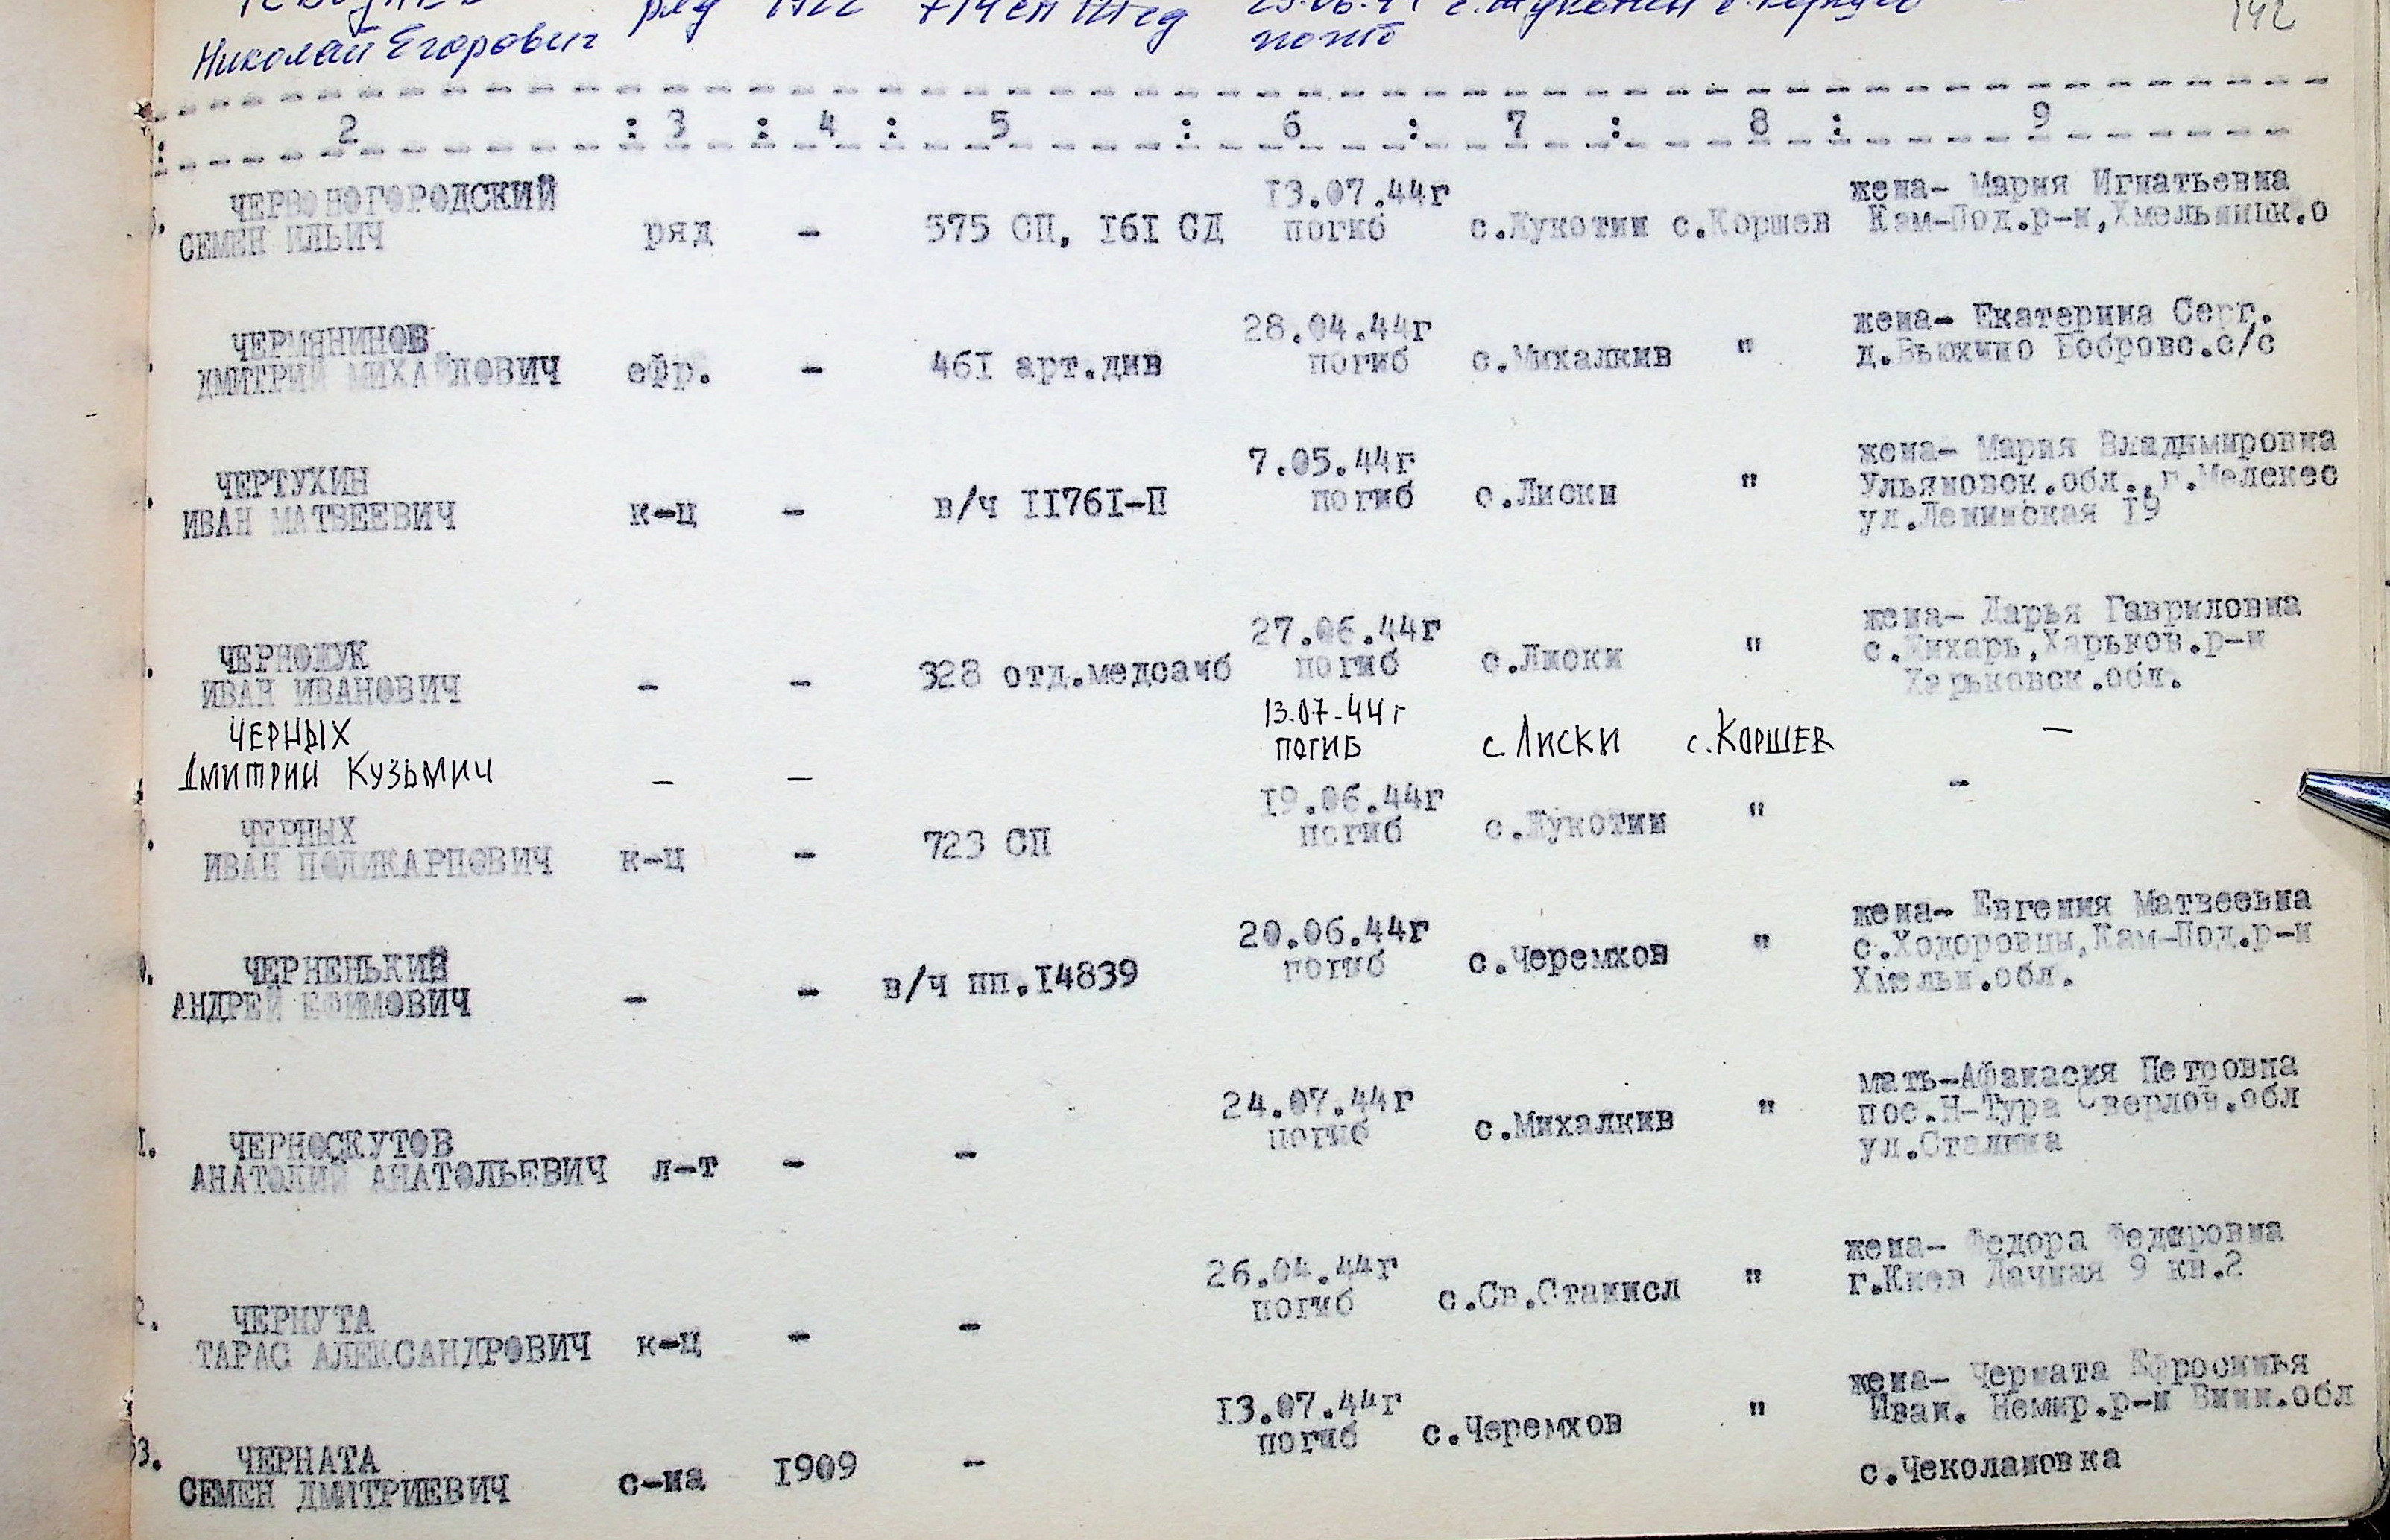 ряд 1922 714 сп
Николай Егорович погиб
142
2 : 3 : 4 : 5 : 6 : 7 : 8 : 9
ЧЕРВОВОГОРОДСКИЙ 13.07.44г жена- Мария Игнатьевна
СЕМЕН ИЛЬИЧ ряд - 575 СП, 161 СД погиб с.Жукотин с.Коршев Кам-Под.р-н,Хмельницк.о
ЧЕРМЯНИНОВ 28.04.44г жена- Екатерина Серг.
ДМИТРИЙ МИХАЙЛОВИЧ ефр. - 461 арт.див погиб с.Михалкив " д.Вьюхино Бобровс.с/с
ЧЕРТУХИН 7.05.44г жена- Мария Владимировна
ИВАН МАТВЕЕВИЧ к-ц - в/ч 11761-П погиб с.Лиски " Ульяновск.обл.,г.Мелекес
ул.Ленинская 19
27.06.44г жена- Дарья Гавриловна
ЧЕРНОМУК погиб с.Лиски " Харьков.р-н
ИВАН ИВАНОВИЧ - - 328 отд.медсанб Харьковск.обл.
ЧЕРНЫХ 13.07.44г с.Лиски с.Коршев -
Дмитрий Кузьмич - - погиб
ЧЕРНЫХ 19.06.44г -
ИВАН ПОЛИКАРПОВИЧ к-ц - 723 СП погиб с.Жукотин "
ЧЕРНЕНЬКИЙ 20.06.44г жена- Евгения Матвеевна
АНДРЕЙ ЕФИМОВИЧ - - в/ч пп.14839 погиб с.Черемхов " с.Ходоровцы,Кам-Под.р-н
Хмельн.обл.
24.07.44г мать-Афанасия Петровна
1. ЧЕРНОСКУТОВ погиб с.Михалкив " пос.Н-Тура Свердлов.обл
АНАТОЛИЙ АНАТОЛЬЕВИЧ л-т - - ул.Сталина
26.04.44г жена- Федора Федоровна
2. ЧЕРНУТА погиб с.Св.Станисл " г.Киев Дачная 9 кв.2
ТАРАС АЛЕКСАНДРОВИЧ к-ц - -
13.07.44г жена- Черната Ефросинья
погиб с.Черемхов " Иван. Немир.р-н Винн.обл
53. ЧЕРНАТА
СЕМЕН ДМИТРИЕВИЧ с-на 1909 - с.Чеколановка